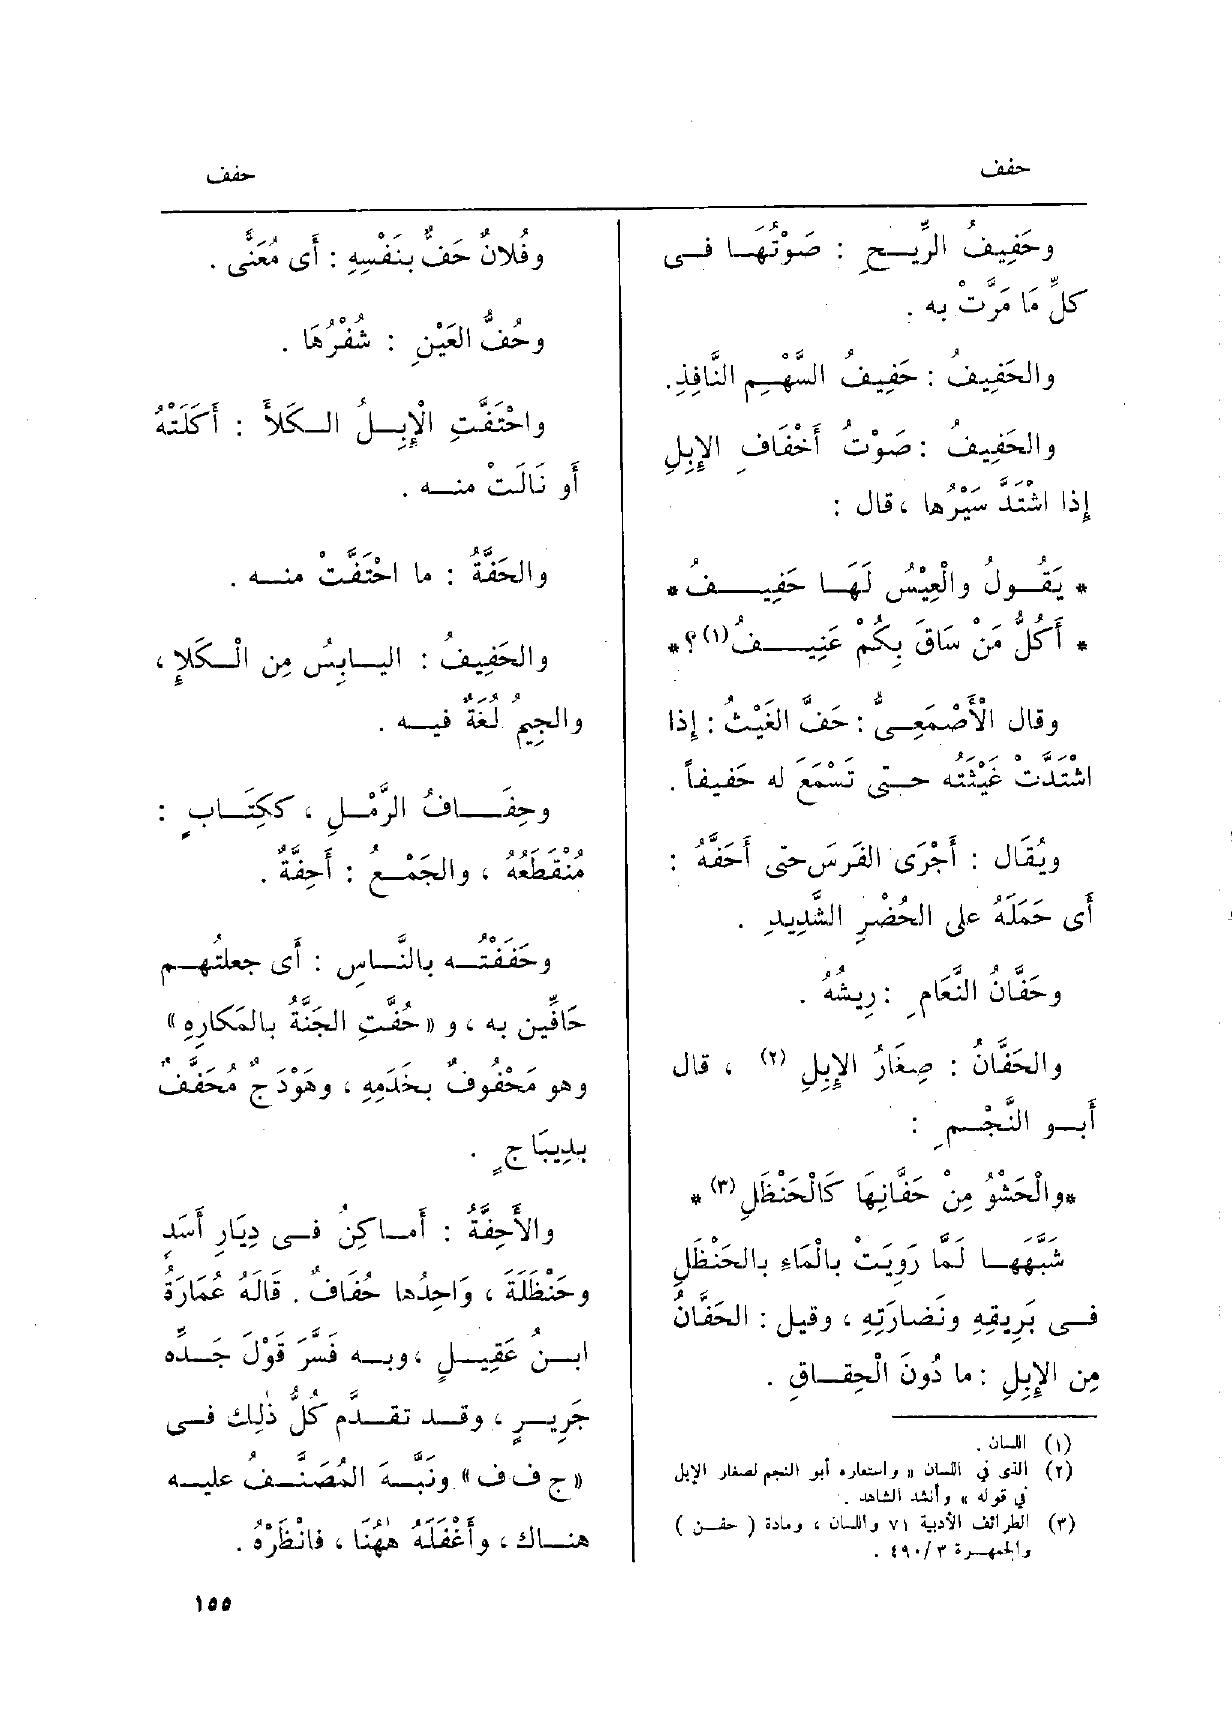 حفف
حفف
وحَفِيفُ الرِّيــحِ : صَوْتُهَــا فــى
كلِّ مَا مَرَّتْ به .
والحَفِيفُ : حَفِيفُ السَّهْــمِ النَّافِذِ.
والحَفِيفُ : صَوْتُ أَخْفَافِ الإِبِلِ
إِذا اشْتَدَّ سَيْرُها ، قال :
* يَقُــولُ والْعِيْسُ لَهَــا حَفِيــــفُ *
* أَكُلُّ مَنْ سَاقَ بِكُمْ عَنِيــــفُ(١)؟ *
وقال الْأَصْمَعِــىُّ : حَفَّ الغَيْثُ : إذا
اشْتَدَّتْ غَيْثَتُه حــتى تَسْمَعَ له حَفيفاً .
ويُقَال : أَجْرَى الفَرَسَ حتى أَحَفَّهُ :
أَى حَمَلَهُ على الحُضْرِ الشَّدِيدِ .
وحَفَّانُ النَّعَامِ : رِيشُهُ .
والحَفَّانُ : صِغَارُ الإِبِلِ (٢) ، قال
أَبــو النَّجْــمِ :
*والْحَشْوُ مِنْ حَفَّانِهَا كَالْحَنْظَلِ(٣) *
شَبَّهَهــا لَمَّا رَوِيَتْ بالْمَاءِ بالحَنْظَلِ
فــى بَرِيقِهِ ونَضَارَتِهِ ، وقيل : الحَفَّانُ
مِن الإِبِلِ : ما دُونَ الْحِقــاقِ .
(١) اللسان .
(٢) الذى فى اللسان « واستعاره أبو النجم لصغار الإبل
فى قوله » وأنشد الشاهد .
(٣) الطرائف الأدبية ٧١ واللسان ، ومادة ( حفــن )
والجمهــرة ٣ /٤٩٠ .
وفُلانٌ حَفٌّ بنَفْسِهِ : أَى مُعَنًّى .
وحُفُّ العَيْنِ : شُفْرُهَا .
واحْتَفَّتِ الْإِبِــلُ الــكَلأَ : أَكَلَتْهُ
أَو نَالَتْ منــه .
والحَفَّةُ : ما احْتَفَّتْ منــه .
والحَفِيفُ : اليــابِسُ مِن الْــكَلإِ ،
والجِيمُ لُغَةٌ فيــه .
وحِفَــــافُ الرَّمْــلِ ، ككِتَــابٍ :
مُنْقَطَعُهُ ، والجَمْــعُ : أَحِفَّةٌ .
وحَفَفْتُــه بالنَّــاسِ : أَى جعلتُهــم
حَافِّين به ، و « حُفَّتِ الجَنَّةُ بالمَكارِهِ »
وهو مَحْفُوفٌ بخَدَمِهِ ، وهَوْدَجٌ مُحَفَّفٌ
بدِيبَاجٍ .
والأَحِفَّةُ : أَمــاكِنُ فــى دِيَارِ أَسَدٍ
وحَنْظَلَةَ ، وَاحِدُها حُفَافٌ . قَالَهُ عُمَارَةُ
ابــنُ عَقِيــلٍ ، وبــه فَسَّرَ قَوْلَ جَــدِّه
جَرِيــرٍ ، وقــد تقــدَّم كُلُّ ذٰلِك فــى
« ج ف ف » ونَبَّــهَ المُصَنِّــفُ عليــه
هنــاك ، وأَغْفَلَهُ هٰهُنَا ، فانْظُرْهُ .
١٥٥